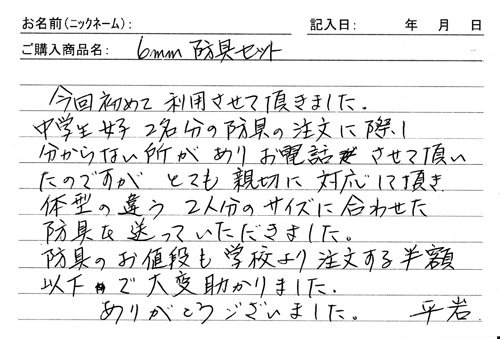 お名前(ニックネーム): 記入日: 年 月 日
ご購入商品名: 6mm 防具セット
今回初めて利用させて頂きました.
中学生女子 2名分の防具の注文に際し
分からない所がありお電話させて頂い
たのですが とても親切に対応して頂き
体型の違う 2人分のサイズに合わせた
防具を送っていただきました。
防具のお値段も学校より注文する半額
以下で大変助かりました.
ありがとうございました。 平岩